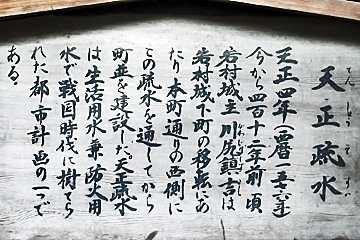 天正疏水
天正四年(西暦一五七六年)
今から四百十二年前頃
岩村城主川尻鎮吉は
岩村城下町の移転にあ
たり本町通りの西側に
この疏水を通してから
町並を建設した。天正疏水
は生活用水兼防火用
水で戦国時代に樹てら
れた都市計画の一つで
ある。